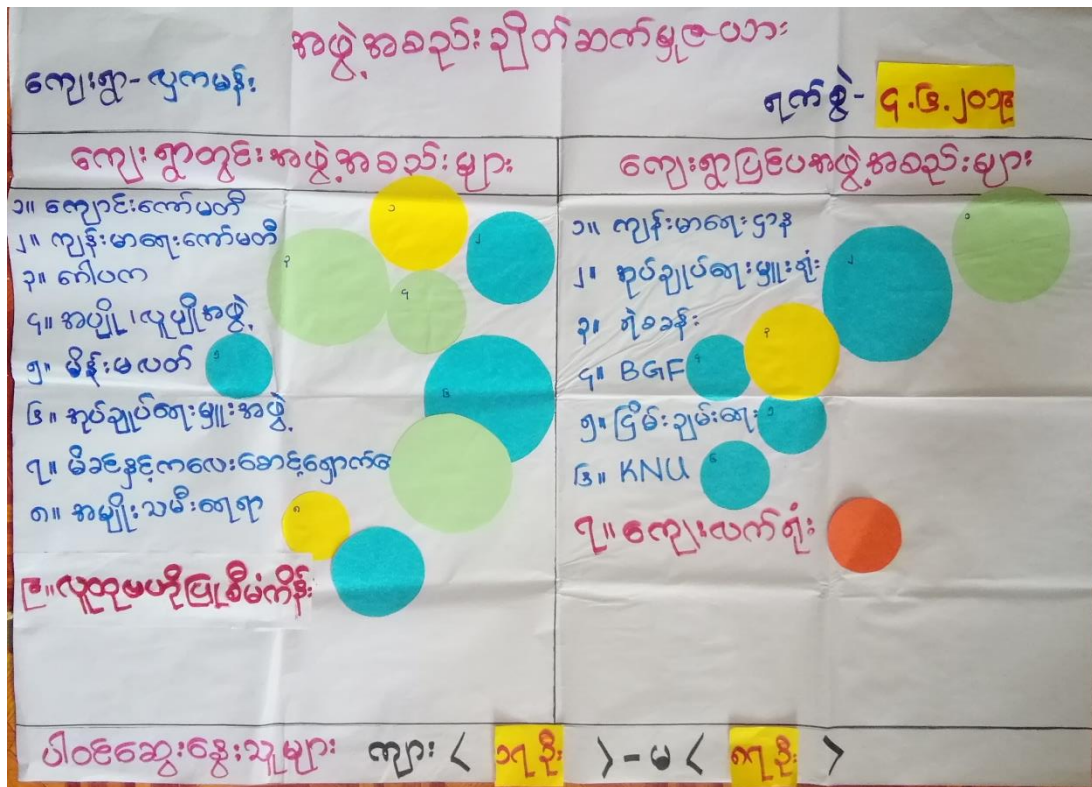 အဖွဲ့အစည်းချိတ်ဆက်မှုဇယား
ကျေးရွာ-လှကမန်း
ရက်စွဲ- ၄.၆.၂၀၁၉
ကျေးရွာတွင်းအဖွဲ့အစည်းများ
၁။ ကျောင်းကော်မတီ
၂။ ကျန်းမာရေးကော်မတီ
၃။ ဂေါပက
၄။ အပျို၊လူပျိုအဖွဲ့
၅။ မိန်းမလတ်
၆။ အုပ်ချုပ်ရေးမှူးအဖွဲ့
၇။ မိခင်နှင့်ကလေးစောင့်ရှောက်ရေး
၈။ အမျိုးသမီးရေးရာ
၉။လူထုဗဟိုပြုစီမံကိန်း
ကျေးရွာပြင်ပအဖွဲ့အစည်းများ
၁။ ကျန်းမာရေးဌာန
၂။ အုပ်ချုပ်ရေးမှူးရုံး
၃။ ရဲစခန်း
၄။ BGF
၅။ ငြိမ်းချမ်းရေး
၆။ KNU
၇။ကျေးလက်ရုံး
၁
၂
၃
၄
၅
၆
၈
၁
၂
၃
၄
၅
၆
ပါဝင်ဆွေးနွေးသူများ ကျား < ၁၇ ဦး > - မ < ၈၇ ဦး >